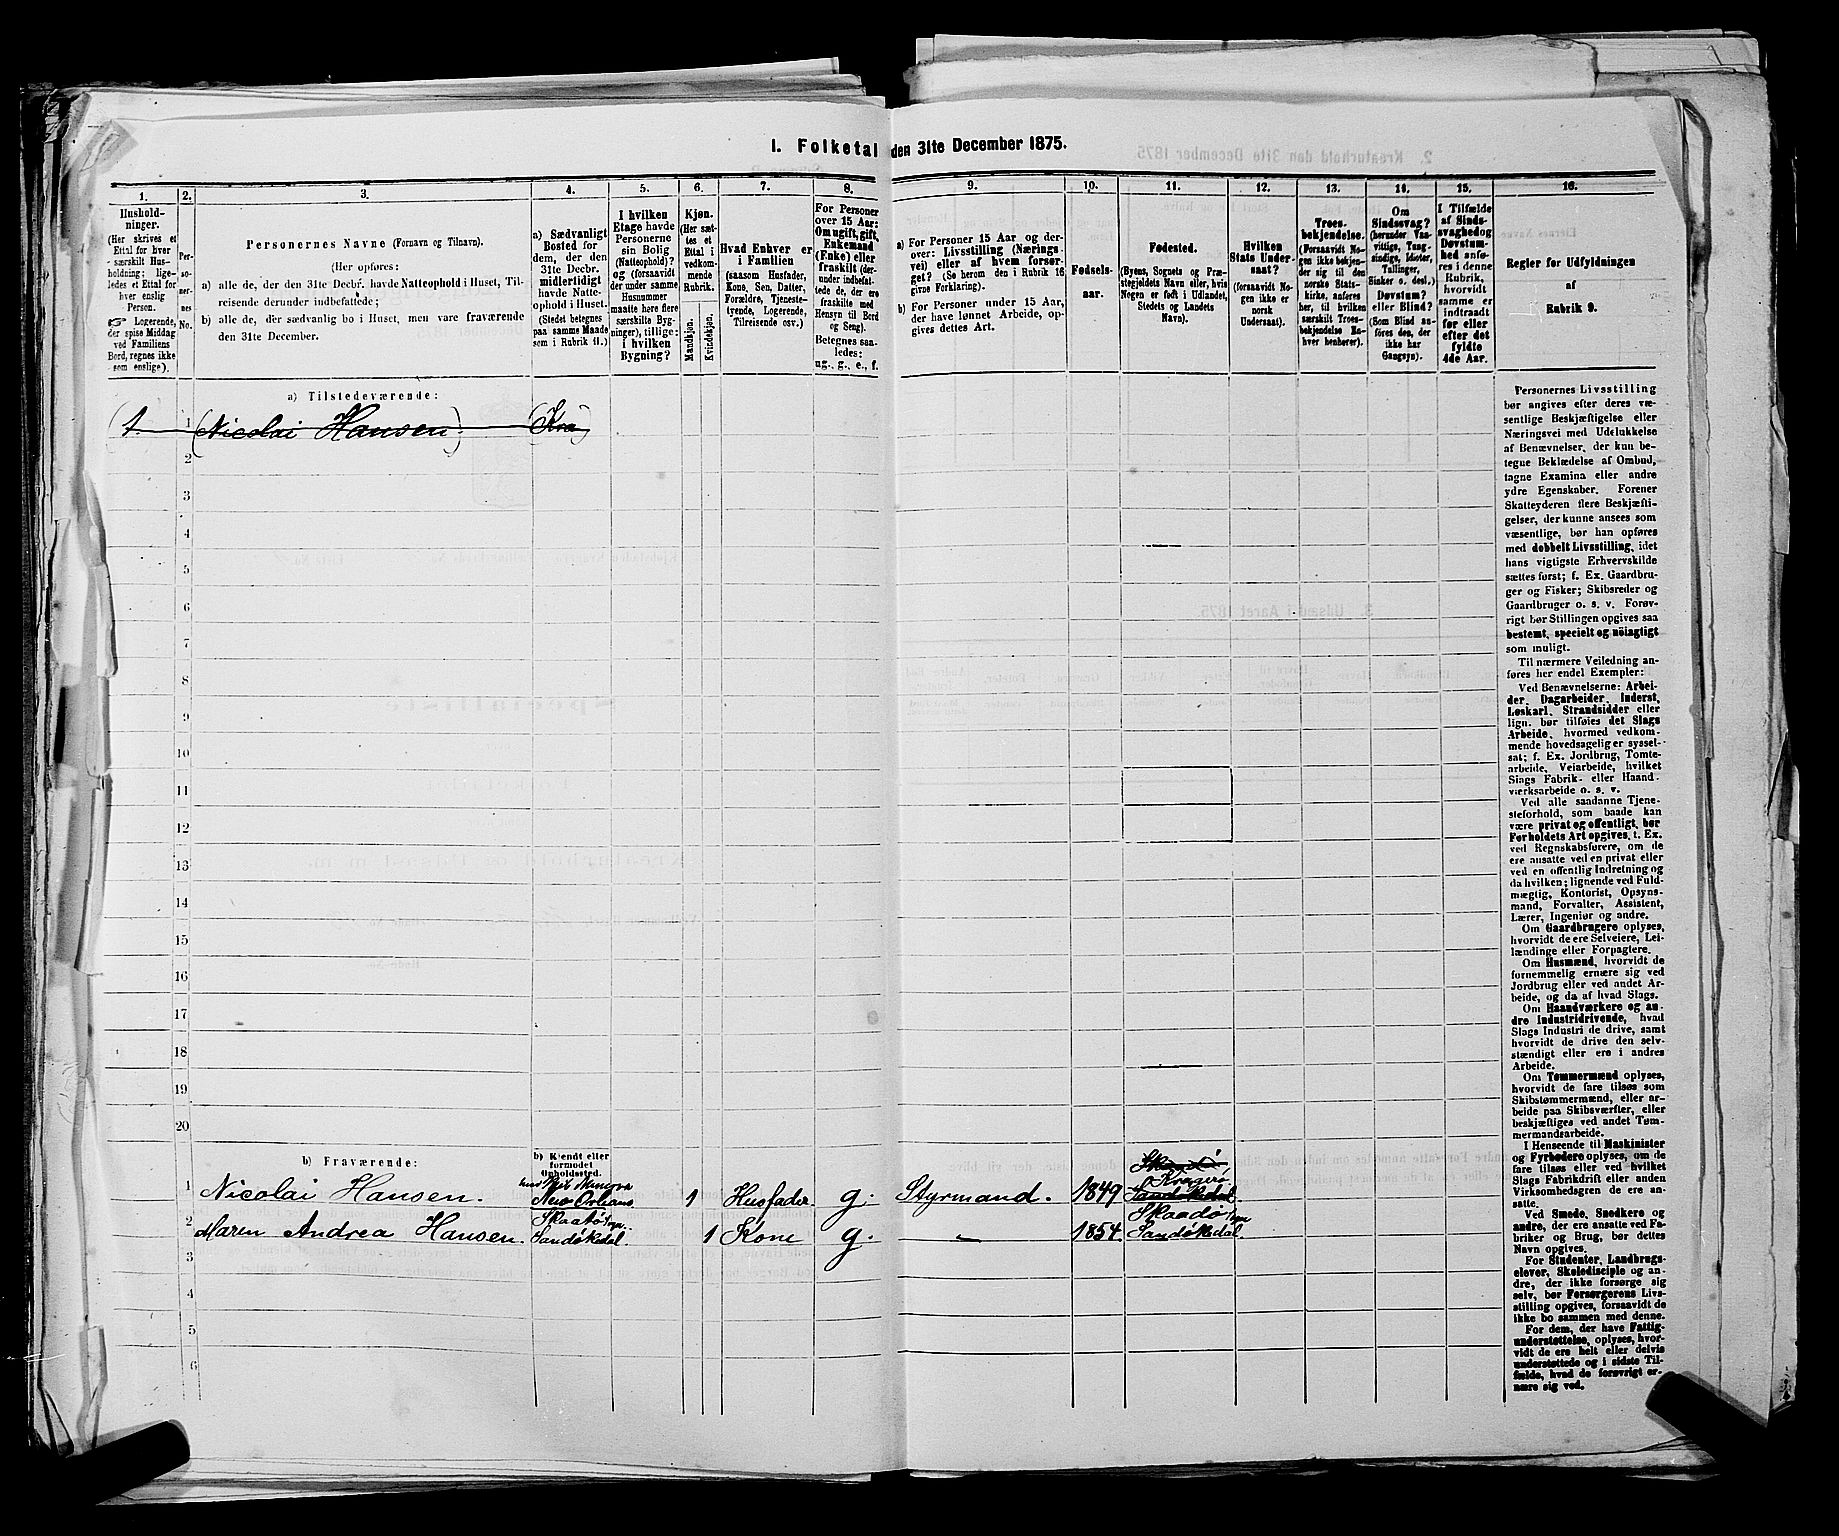 1. Folketal den 31te December 1875.
1.
2.
3.
4.
5.
6.
7.
8.
9.
10.
11.
12.
13.
14.
15.
16.
Husholdninger.
(Her skrives et
Ettal for hver
særskilt Husholdning;
ligeledes et Ettal for
hver enslig
Person.
☞ Logerende,
der spise Middag
ved Familiens
Bord, regnes ikke
som enslige).
Personernes
No.
Personernes Navne (Fornavn og Tilnavn).
(Her opføres:
a) alle de, der den 31te Decbr. havde Natteophold i Huset, Tilreisende
derunder indbefattede;
b) alle de, der sædvanlig bo i Huset, men vare fraværende
den 31te December.
a) Sædvanligt
Bosted for
dem, der den
31te Decbr.
midlertidigt
havde Natteophold
i Huset.
(Stedet betegnes
paa samme Maade
som i Rubrik 11.)
I hvilken
Etage havde
Personerne
sin Bolig
(Natteophold)?
og (forsaavidt
der under samme
Husnummer
maatte høre flere
særskilte Bygninger),
tillige:
i hvilken
Bygning?
Kjøn.
(Her sættes
et
Ettal i
vedkommende
Rubrik.
Mandkjøn.
Kvindekjøn.
Hvad Enhver er
i Familien
(saasom Husfader,
Kone, Søn, Datter,
Forældre, Tjenestetyende,
Logerende,
Tilreisende osv.)
For Personer
over 15 Aar:
Om ugift, gift,
Enkemand
(Enke) eller
fraskilt (derunder
indbefattede
de, der ere
fraskilte med
Hensyn til Bord
og Seng).
Betegnes saaledes:
ug., g., e., f.
a) For Personer 15 Aar og derover:
Livsstilling (Næringsvei)
eller af hvem forsørget?
(Se herom den i Rubrik 16
givne Forklaring).
b) For Personer under 15 Aar,
der have lønnet Arbeide, opgives
dettes Art.
Fødselsaar.
Fødested.
(Byens, Sognets og Præstegjeldets
Navn eller, hvis
Nogen er født i Udlandet,
Stedets og Landets
Navn).
Hvilken
Stats Undersaat?
(forsaavidt Nogen
ikke er
norsk
Undersaat).
Troesbekjendelse.
(Forsaavidt Nogen
ikke bekjender
sig til den
norske Statskirke,
anføres
her, til hvilken
særskilt Troesbekjendelse
Enhver
henhører).
Om
Sindssvag?
(herunder Vanvittige,
Tungsindige,
Idioter,
Tullinger,
Sinker o. desl.)
Døvstum?
eller Blind?
(Som Blind anføres
den, der
ikke har
Gangsyn).
I Tilfælde
af Sindssvaghed
og
Døvstumhed
anføres
i denne
Rubrik,
hvorvidt
samme er
indtraadt
før eller
efter det
fyldte
4de Aar.
Regler for Udfyldningen
af
Rubrik 9.
a) Tilstedeværende:
(1. 1 (Nicolai Hansen) (Kra)
2
3
4
5
6
7
8
9
10
11
12
13
14
15
16
17
18
19
20
b) Fraværende:
b) Kjendt eller
formodet
Opholdssted.
Skaadø
Kragerø
1 Nicolai Hansen. New Orleans 1 Husfader g. Styrmand. 1849 Sandøkedal
Skaatø Sogn Skaadø Sogn
2 Maren Andrea Hansen. Sandøkedal. 1 Kone g. – 1854. Sandøkedal.
3
4
5
6
Personernes Livsstilling
bør angives efter deres væsentlige
Beskjæftigelse eller
Næringsvei med Udelukkelse
af Benævnelser, der kun betegne
Beklædelse af Ombud,
tagne Examina eller andre
ydre Egenskaber. Forener
Skatteyderen flere Beskjæftigelser,
der kunne ansees som
væsentlige, bør han opføres
med dobbelt Livsstilling, idet
hans vigtigste Erhvervskilde
sættes først; f. Ex. Gaardbruger
og Fisker; Skibsreder og
Gaardbruger o. s. v. Forøvrigt
bør Stillingen opgives saa
bestemt, specielt og nöiagtigt
som muligt.
Til nærmere Veiledning anføres
her endel Exempler:
Ved Benævnelserne: Arbeider,
Dagarbeider, Inderst,
Løskarl, Strandsidder eller
lign. bør tilføies det Slags
Arbeide, hvormed vedkommende
hovedsagelig er sysselsat;
f. Ex. Jordbrug, Tomtearbeide,
Veiarbeide, hvilket
Slags Fabrik- eller Haandværksarbeide
o. s. v.
Ved alle saadanne Tjenesteforhold,
som baade kan
være privat og offentligt, bør
Forholdets Art opgives, t. Ex.
ved Regnskabsførere, om de
ere ansatte ved en privat eller
ved en offentlig Indretning og
da hvilken; lignende ved Fuldmægtig,
Kontorist, Opsynsmand,
Forvalter, Assistent,
Lærer, Ingeniør og andre.
Om Gaardbrugere oplyses,
hvorvidt de ere Selveiere, Leilændinge
eller Forpagtere.
Om Husmænd, hvorvidt de
fornemmelig ernære sig ved
Jordbrug eller ved andet Arbeide,
og da af hvad Slags.
Om Haandværkere og andre
Industridrivende, hvad
Slags Industri de drive, samt
hvorvidt de drive den selvstændigt
eller ere i andres
Arbeide.
Om Tømmermænd oplyses,
hvorvidt de fare tilsøs som
Skibstømmermænd, eller arbeide
paa Skibsværfter, eller
beskjæftiges ved andet Tømmermandsarbeide.
I Henseende til Maskinister
og Fyrbødere oplyses, om de
fare tilsøs eller ved hvilket
Slags Fabrikdrift eller anden
Virksomhedsgren de ere ansatte.
Ved Smede, Snedkere og
andre, der ere ansatte ved Fabriker
og Brug, bør dettes
Navn opgives.
For Studenter, Landbrugselever,
Skoledisciple og andre,
der ikke forsørge sig
selv, bør Forsørgerens Livsstilling
opgives, forsaavidt de
ikke bo sammen med denne.
For dem, der have Fattigunderstøttelse,
oplyses, hvorvidt
de ere helt eller delvis
understøttede og i sidste Tilfælde,
hvad de forøvrigt ernære
sig ved.